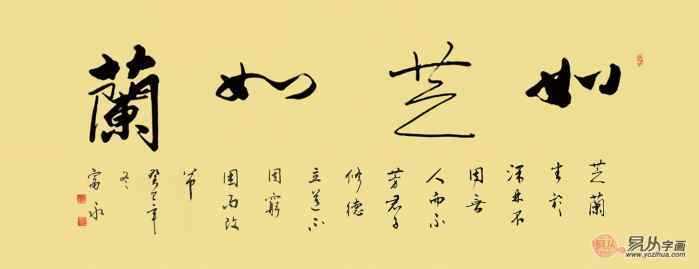 如芝如蘭
芝蘭
生於
深林不
因無
人而不
芳君子
修德
立道不
因窮
困而改
節
癸巳年
冬
富永
易从字画
www.yczihua.com